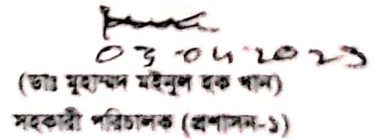 03-04-2023
(ডাঃ মুহাম্মদ মইনুল হক খান)
সহকারী পরিচালক (প্রশাসন-১)